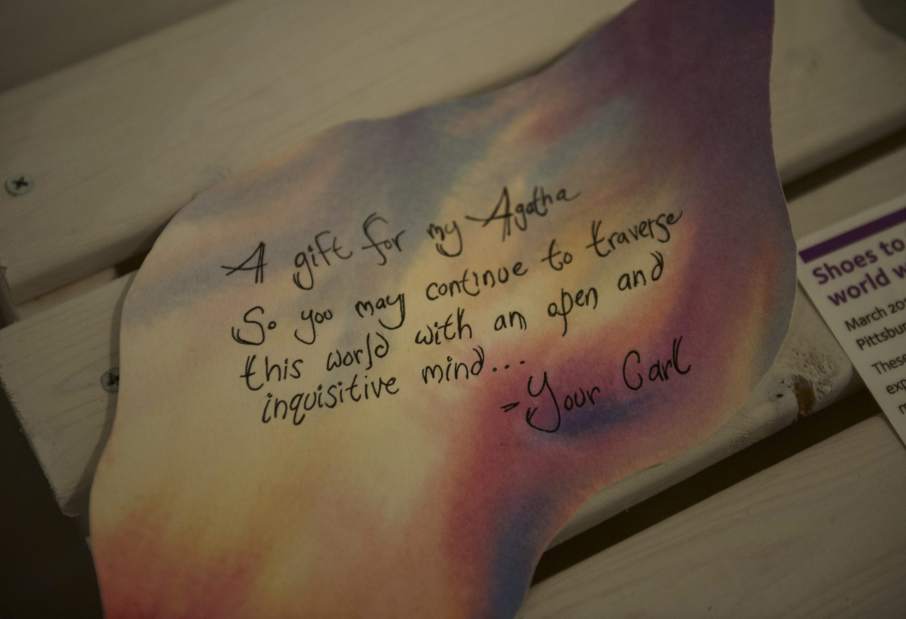 A gift for my Agatha
So you may continue to traverse
this world with an open and
inquisitive mind...
=Your Carl
Shoes to
world
March
Pittsbur
These
exp